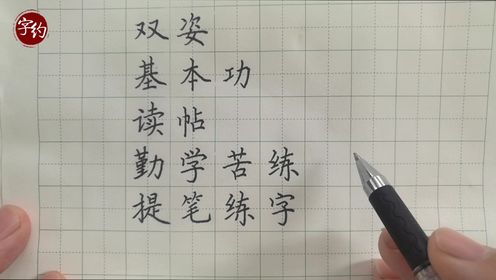 字约
双姿
基本功
读帖
勤学苦练
提笔练字